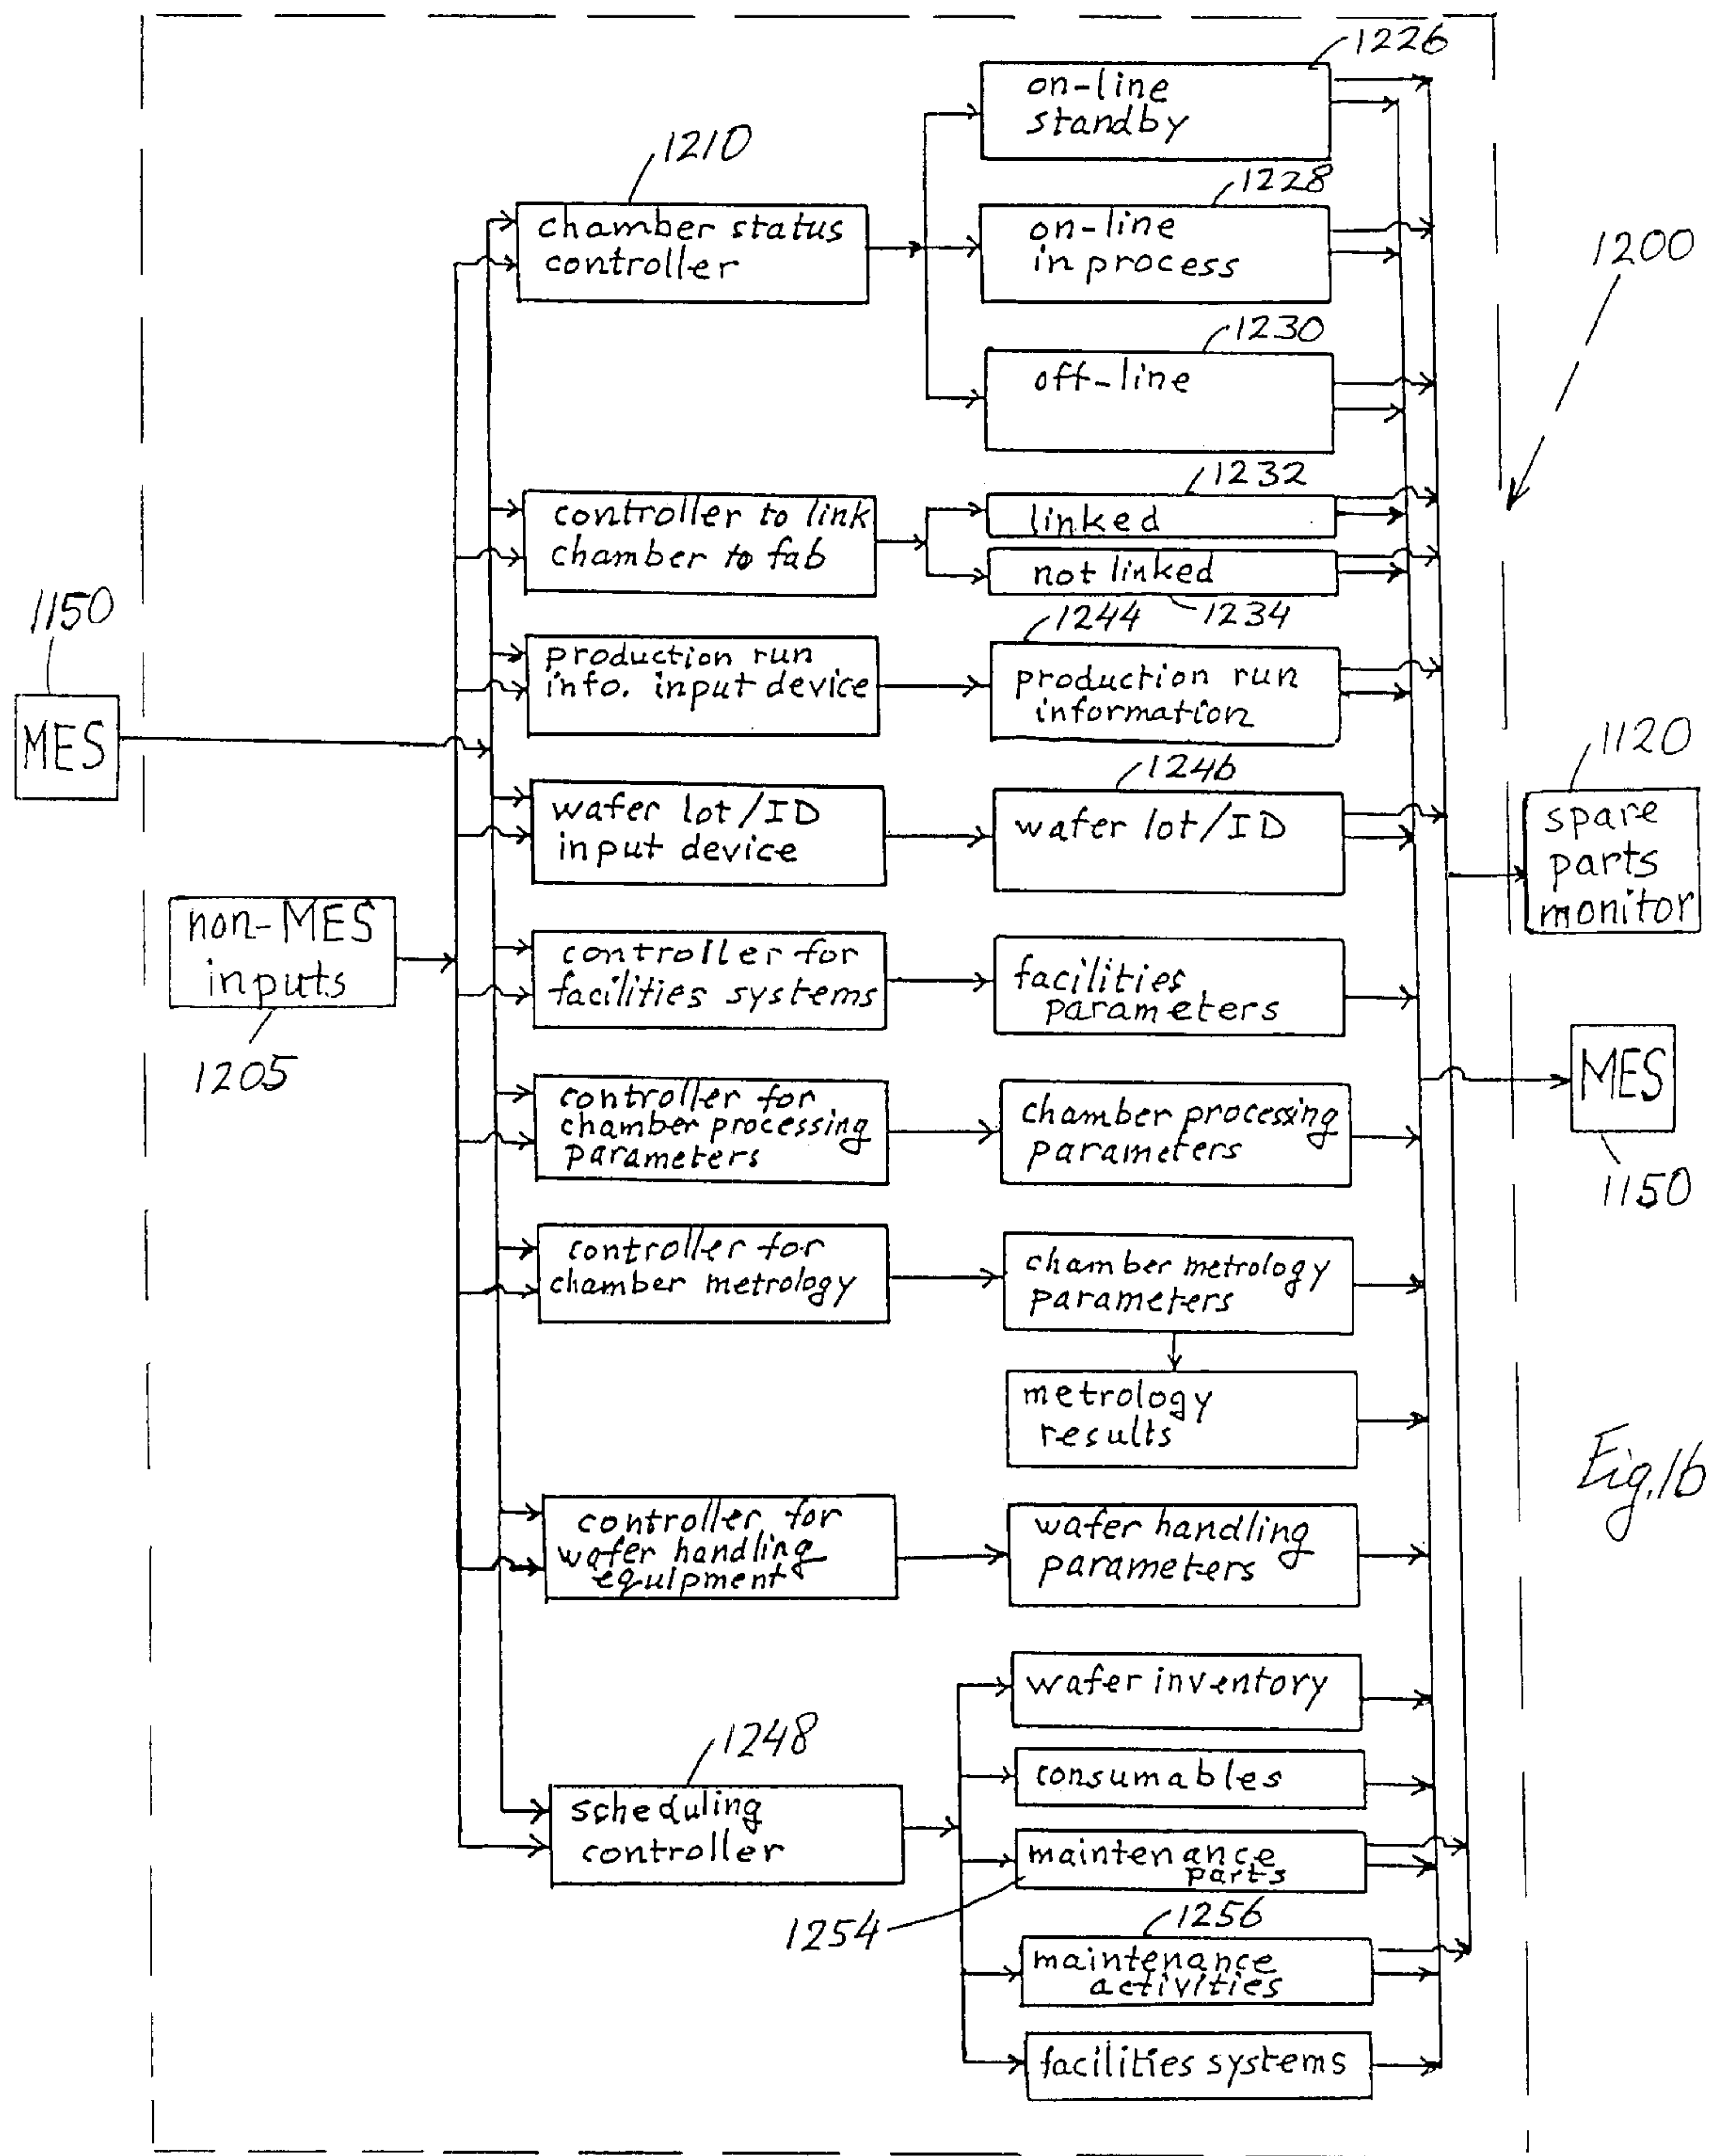 1226
on-line
standby
1210
1228
chamber status
controller
on-line
in process
1200
1230
off-line
1232
controller to link
chamber to fab
linked
not linked
1234
1150
MES
production run
info. input device
1244
production run
information
1246
wafer lot/ID
input device
wafer lot/ID
1120
spare
parts
monitor
non-MES
inputs
1205
controller for
facilities systems
facilities
parameters
MES
1150
controller for
chamber processing
parameters
chamber processing
parameters
controller for
chamber metrology
chamber metrology
parameters
metrology
results
Fig.1b
controller for
wafer handling
equipment
wafer handling
parameters
wafer inventory
1248
scheduling
controller
consumables
maintenance
parts
1254
1256
maintenance
activities
facilities systems